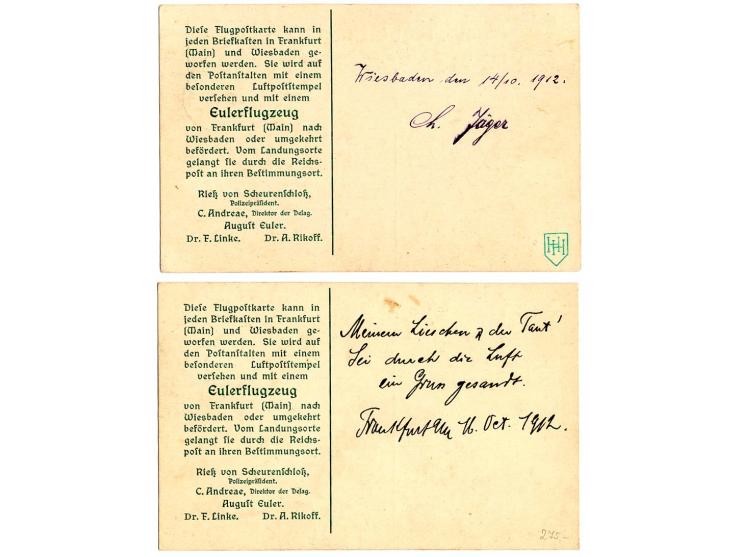 Diese Flugpostkarte kann in
jeden Briefkasten in Frankfurt
(Main) und Wiesbaden ge-
worfen werden. Sie wird auf
den Postanstalten mit einem
besonderen Luftpoststempel
versehen und mit einem
Eulerflugzeug
von Frankfurt (Main) nach
Wiesbaden oder umgekehrt
befördert. Vom Landungsorte
gelangt sie durch die Reichs-
post an ihren Bestimmungsort.
Rieß von Scheurenschloß,
Polizeipräsident.
C. Andreae, Direktor der Delag.
August Euler.
Dr. F. Linke. Dr. A. Rikoff.
Wiesbaden den 14/10. 1912.
Ch. Jäger
HH
Diese Flugpostkarte kann in
jeden Briefkasten in Frankfurt
(Main) und Wiesbaden ge-
worfen werden. Sie wird auf
den Postanstalten mit einem
besonderen Luftpoststempel
versehen und mit einem
Eulerflugzeug
von Frankfurt (Main) nach
Wiesbaden oder umgekehrt
befördert. Vom Landungsorte
gelangt sie durch die Reichs-
post an ihren Bestimmungsort.
Rieß von Scheurenschloß,
Polizeipräsident.
C. Andreae, Direktor der Delag.
August Euler.
Dr. F. Linke. Dr. A. Rikoff.
Meinem Lieschen & der Tant'
Sei durch die Luft
ein Gruss gesandt.
Frankfurt 16. Oct. 1912.
275.-